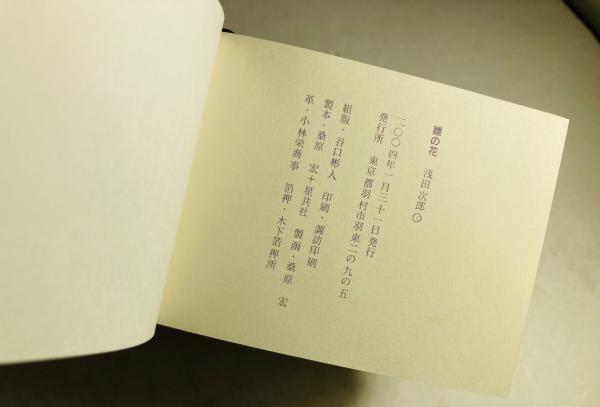 雛の花　浅田次郎
二〇〇四年一月三十一日発行
発行所　東京都羽村市羽東二の九の五
組版・谷口彬人　印刷・諏訪印刷
製本・桑原　宏＋星共社　製函・桑原　宏
革・小林栄商事　箔押・木下箔押所